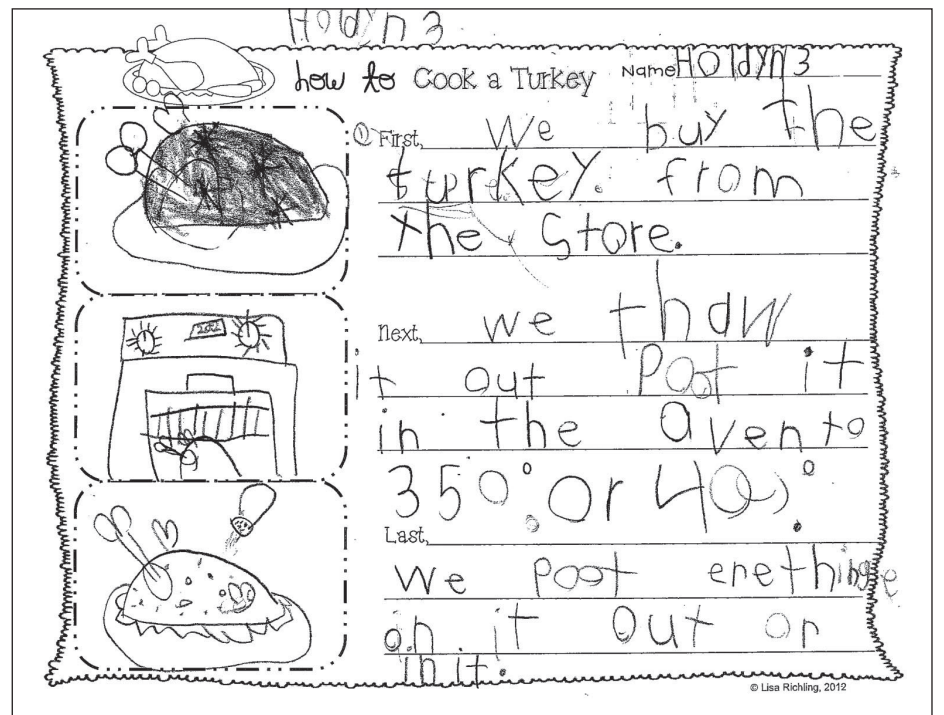 Holdyn 3
how to Cook a Turkey
Name Holdyn 3
① First, We buy the
turkey. from
the Store.
Next, we thaw
it out Poot it
in the aven to
350° or 400.°
Last,
we poot enething
on it out or
in it.
© Lisa Richling, 2012